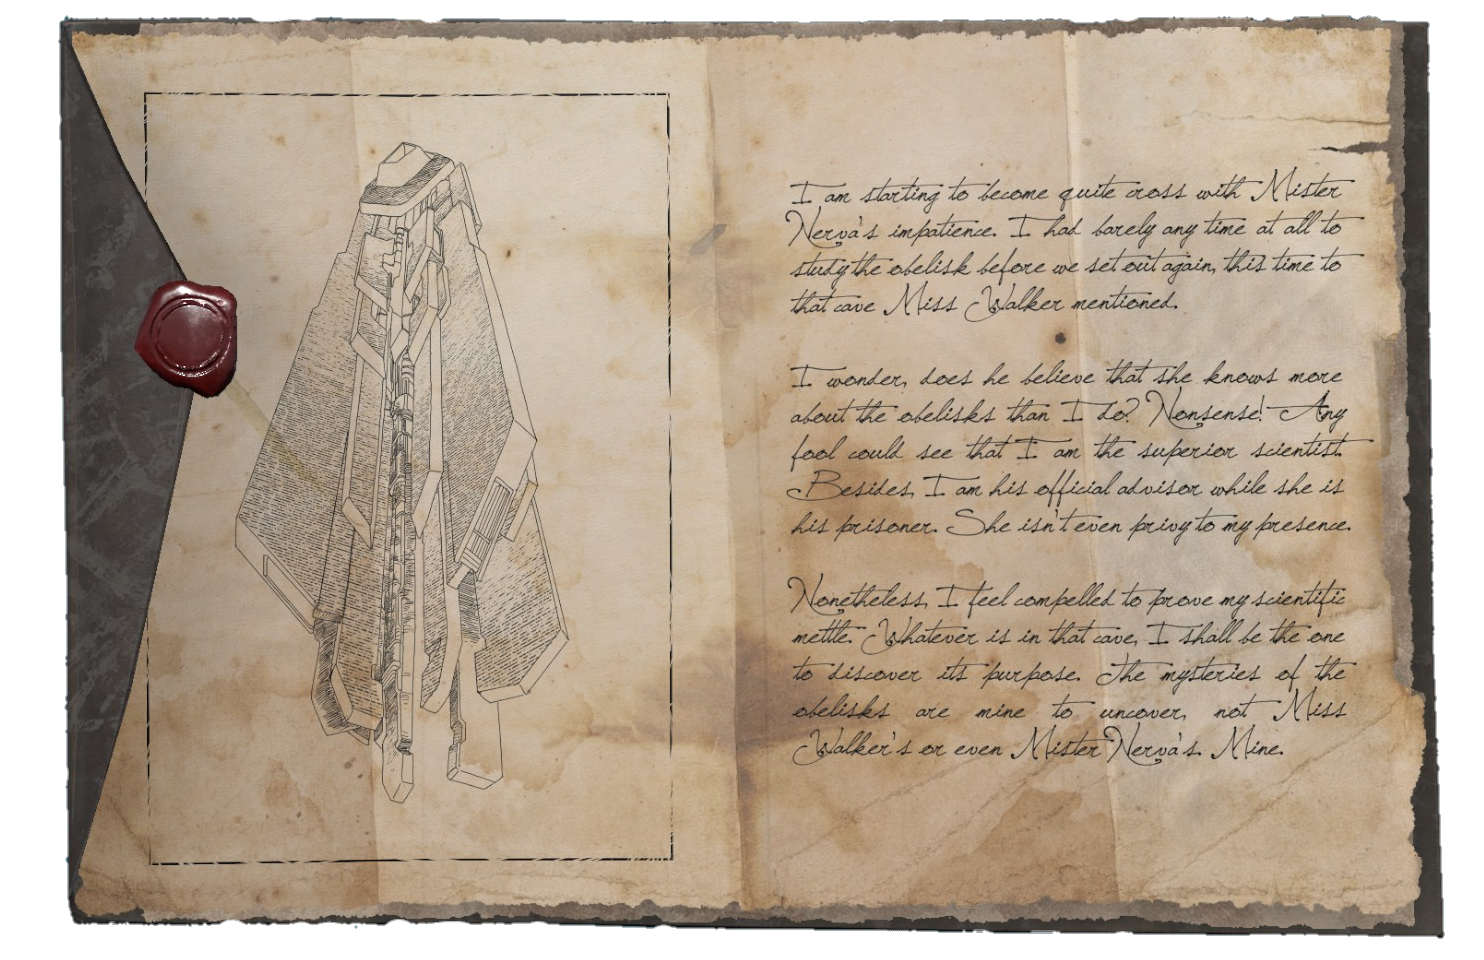 I am starting to become quite cross with Mister
Nerva's impatience. I had barely any time at all to
study the obelisk before we set out again, this time to
that cave Miss Walker mentioned.
I wonder, does he believe that she knows more
about the obelisks than I do? Nonsense! Any
fool could see that I am the superior scientist.
Besides, I am his official advisor while she is
his prisoner. She isn't even privy to my presence.
Nonetheless, I feel compelled to prove my scientific
mettle. Whatever is in that cave, I shall be the one
to discover its purpose. The mysteries of the
obelisks are mine to uncover, not Miss
Walker's or even Mister Nerva's. Mine.